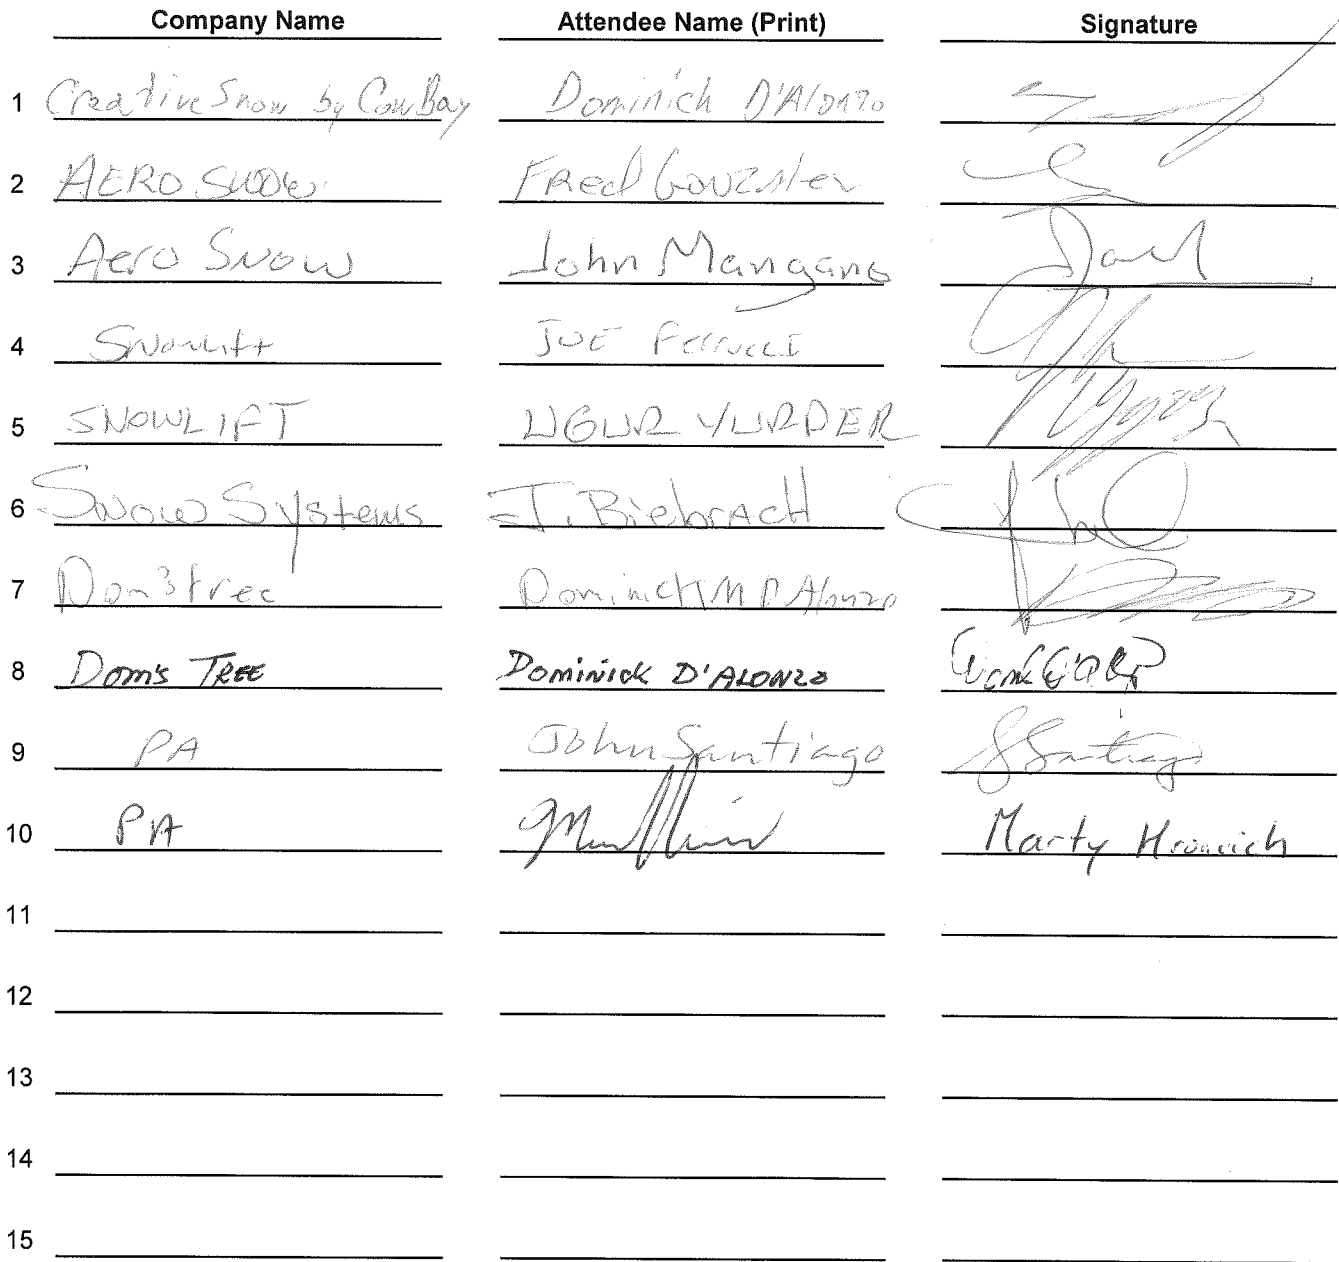 Company Name Attendee Name (Print) Signature
1 Creative Snow by Cow Bay Dominick D'Alonzo
2 AERO SNOW Fred Gonzalez
3 Aero Snow John Mangano
4 Snowlift JOE Ferrucci
5 SNOWLIFT UGUR YURDER
6 Snow Systems J. Biebrach
7 Dom's tree Dominick M D Alonzo
8 Dom's TREE DOMINICK D'ALONZO
9 PA John Santiago J Santiago
10 PA Marty
11
12
13
14
15